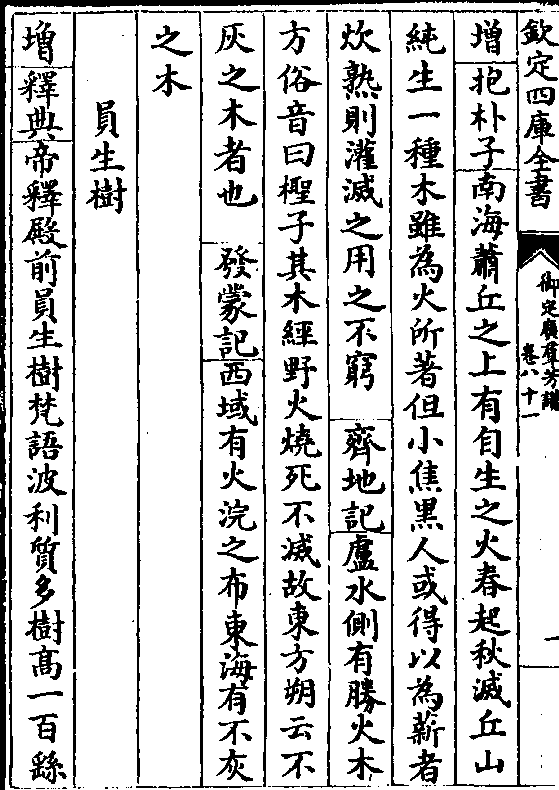 欽定四庫全書
御定廣羣芳譜
卷八十一
一
增抱朴子南海蕭丘之上有自生之火春起秋滅丘山
純生一種木雖為火所著但小焦黑人或得以為薪者
炊熟則灌滅之用之不窮 齊地記盧水側有勝火木
方俗音曰檉子其木經野火燒死不滅故東方朔云不
灰之木者也 發蒙記西域有火浣之布東海有不灰
之木
員生樹
增釋典帝釋殿前員生樹梵語波利質多樹高一百繇